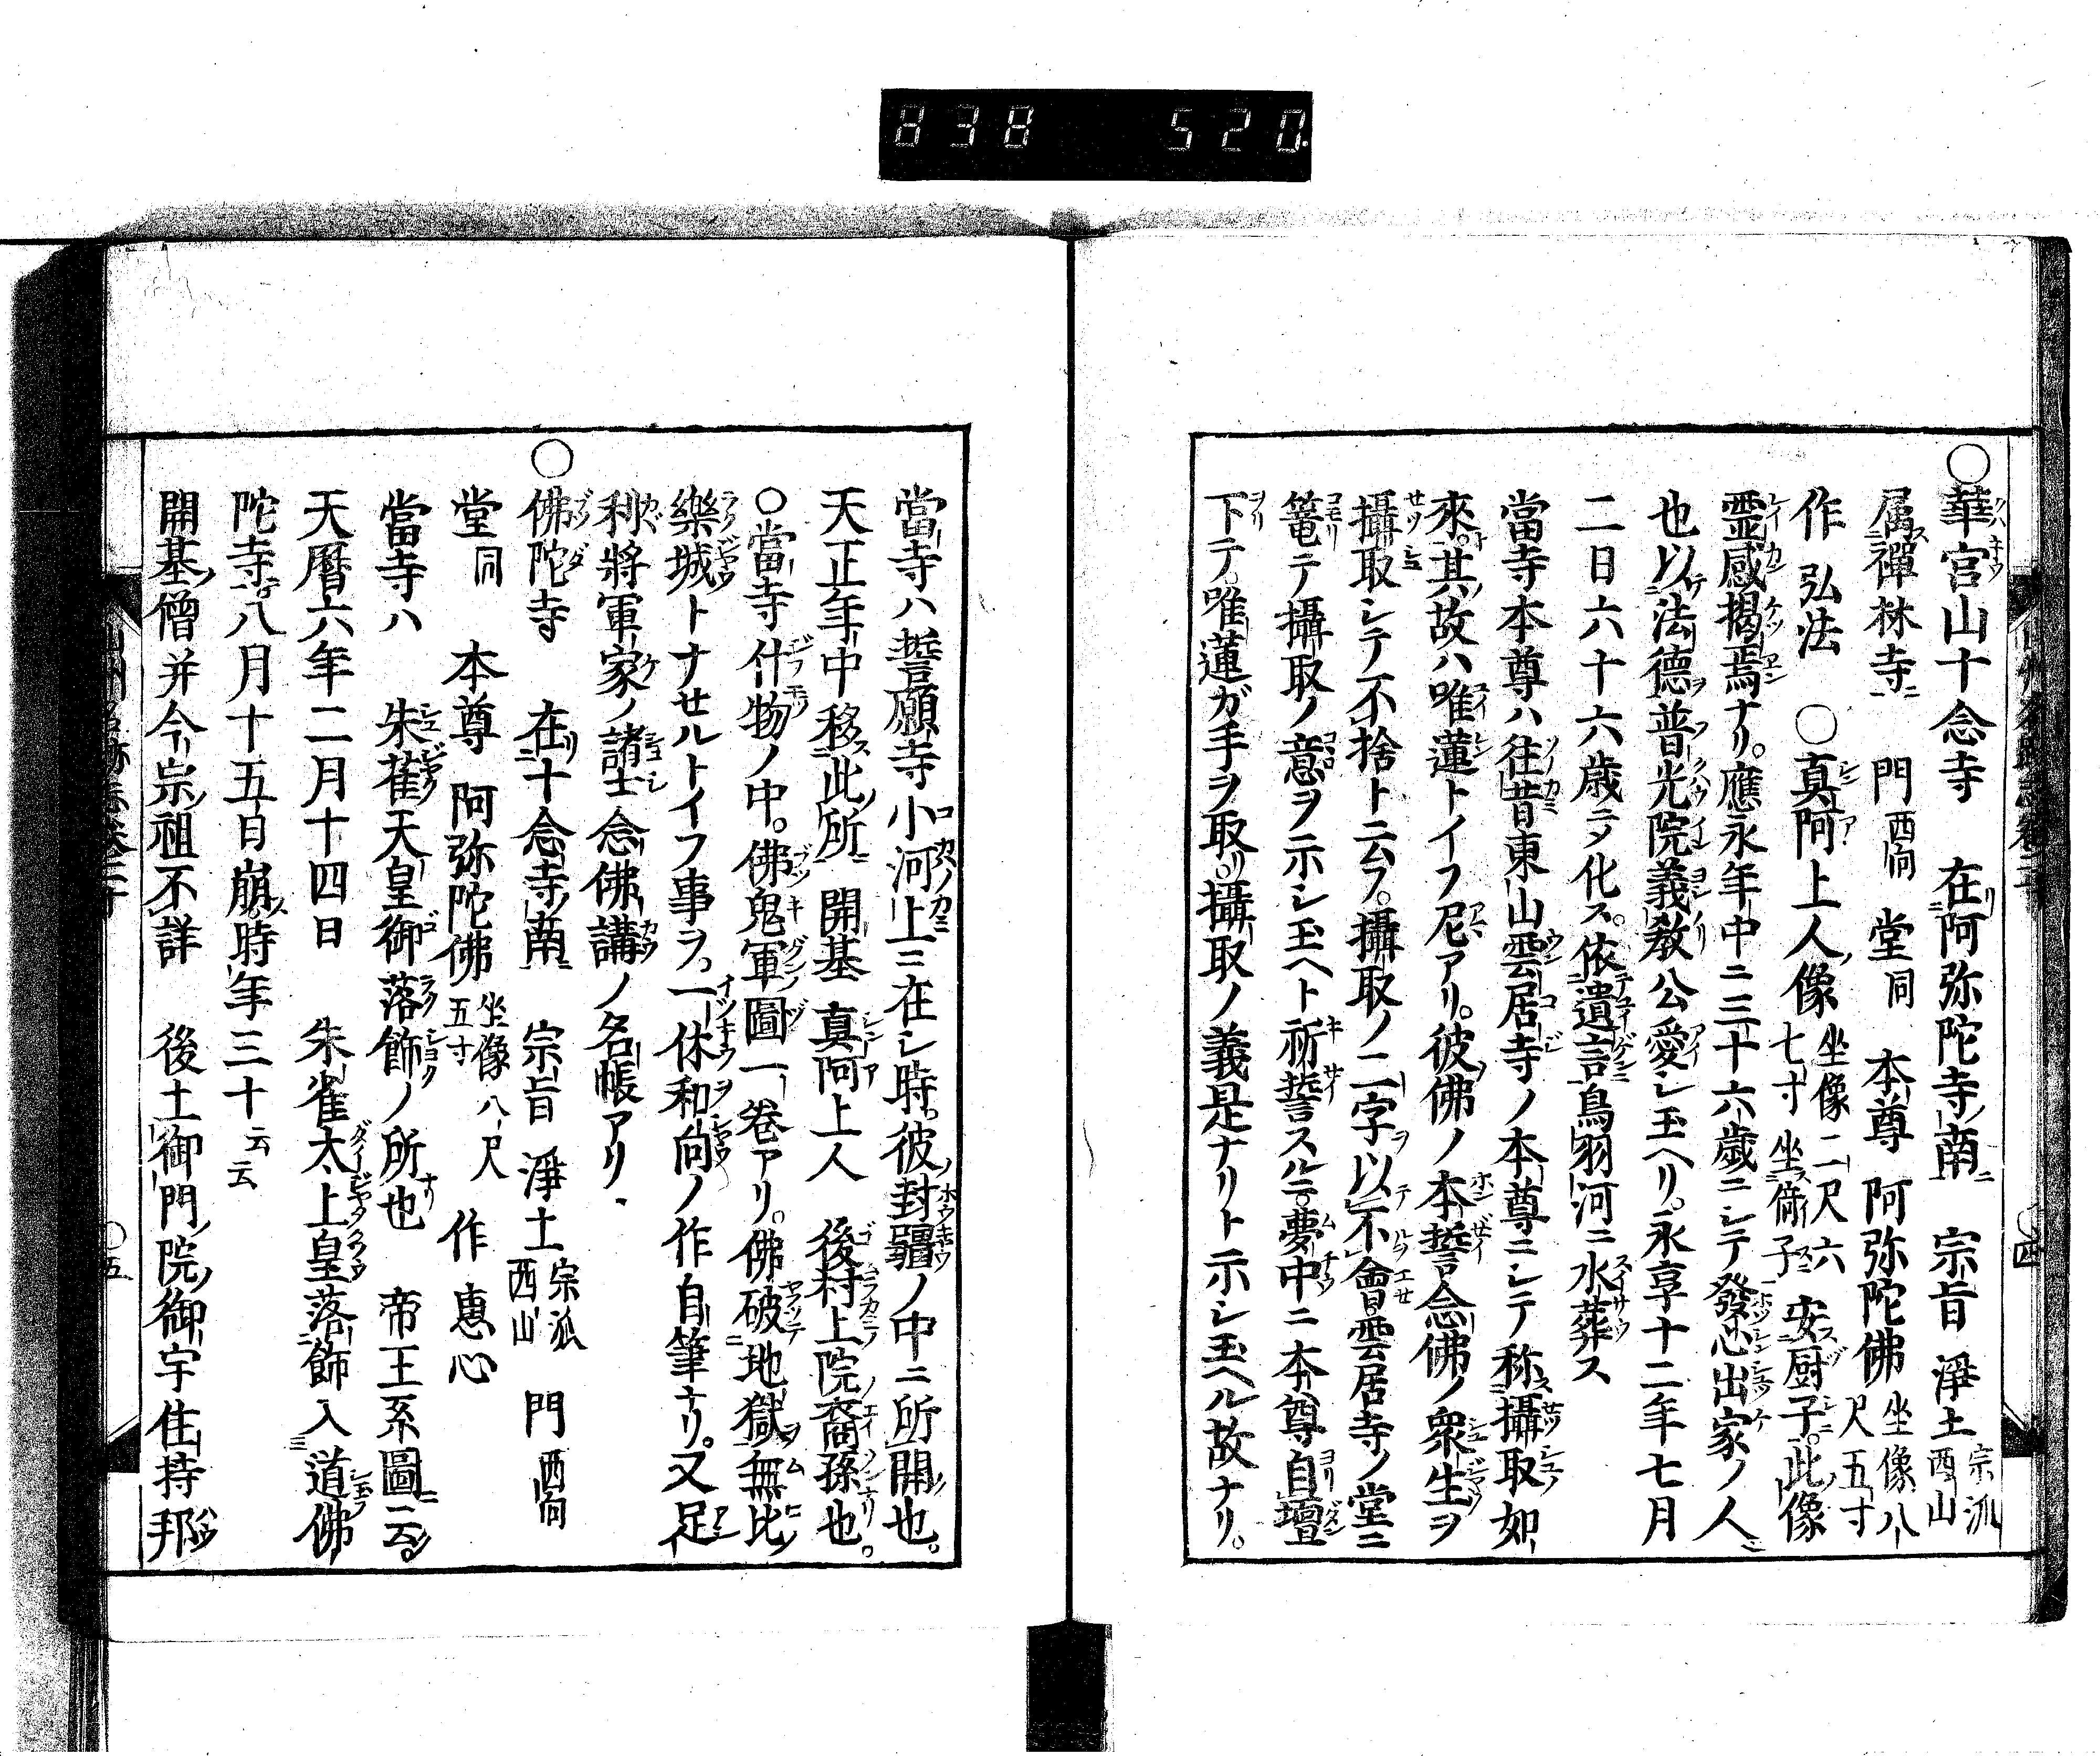 838 520.
○華宮山十念寺 在阿弥陀寺南 宗旨 淨土 宗派 西山
属禪林寺 門 西向 堂 同 本尊 阿弥陀佛 坐像八尺五寸
作 弘法 ○真阿上人像 坐像二尺六七寸 坐倚子 安厨子此像
霊感掲焉ナリ應永年中ニ三十六歳ニシテ發心出家ノ人
也以法德普光院義敎公愛シ玉ヘリ永享十二年七月
二日六十六歳ニテ化ス依遺言鳥羽河ニ水葬ス
當寺本尊ハ往昔東山雲居寺ノ本尊ニシテ称攝取如
來其故ハ唯蓮トイフ尼アリ彼佛ノ本誓念佛ノ衆生ヲ
攝取シテ不捨ト云フ攝取ノ二字以不會雲居寺ノ堂ニ
篭テ攝取ノ意ヲ示シ玉ヘト祈誓スルニ夢中ニ本尊自壇
下テ唯蓮ガ手ヲ取リ攝取ノ義是ナリト示シ玉ヘル故ナリ。
當寺ハ誓願寺小河上ニ在シ時彼封疆ノ中ニ所開也。
天正年中移此所 開基 真阿上人 後村上院裔孫也。
○當寺什物ノ中佛鬼軍圖一巻アリ佛破地獄無比
樂城トナセルトイフ事ヲ一休和尚ノ作自筆ナリ又足
利將軍家ノ諸士念佛講ノ名帳アリ
○佛陀寺 在十念寺南 宗旨 淨土 宗派 西山 門 西向
堂 同 本尊 阿弥陀佛 坐像八尺五寸 作 惠心
當寺ハ 朱雀天皇御落飾ノ所也 帝王系圖ニ云
天曆六年二月十四日 朱雀太上皇落飾入道佛
陀寺八月十五日崩時年三十云云
開基僧并今宗祖不詳 後土御門院御宇住持邦